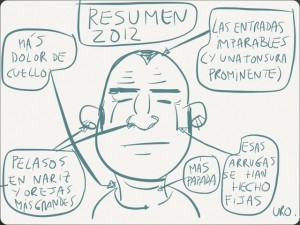 RESUMEN
2012
MÁS
DOLOR DE
CUELLO
LAS ENTRADAS
IMPARABLES
(Y UNA TONSURA
PROMINENTE)
PELASOS
EN NARIZ
Y OREJAS
MAS GRANDES
MÁS
PAPADA
ESAS
ARRUGAS
SE HAN
HECHO
FIJAS
URO.